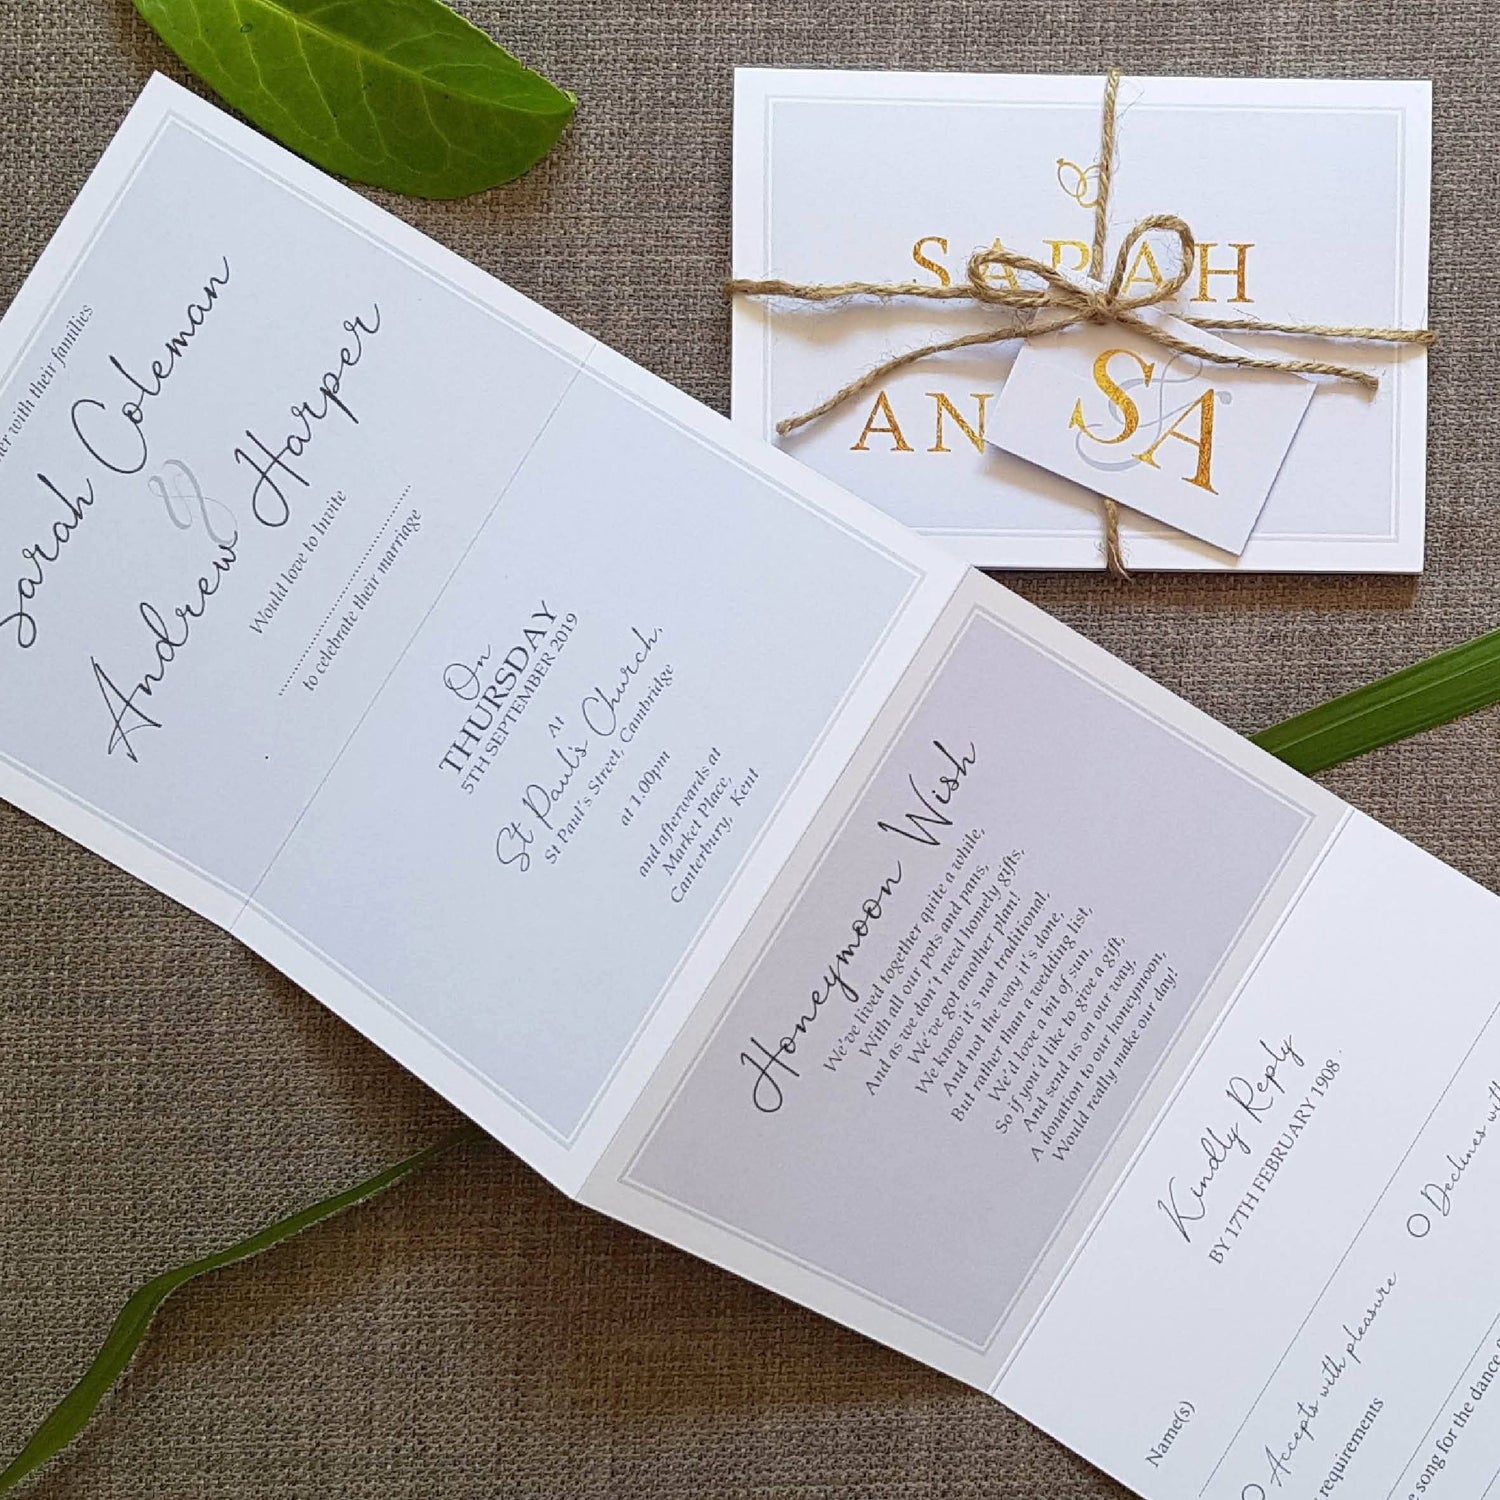 with their families
Sarah Coleman
&
Andrew Harper
Would love to Invite
to celebrate their marriage
On
THURSDAY
5TH SEPTEMBER 2019
At
St Paul's Church,
St Paul's Street, Cambridge
at 1.00pm
and afterwards at
Market Place,
Canterbury, Kent
Honeymoon Wish
We've lived together quite a while,
With all our pots and pans,
And as we don't need homely gifts,
We've got another plan!
We know it's not traditional,
And not the way it's done,
But rather than a wedding list,
We'd love a bit of sun,
So if you'd like to give a gift,
And send us on our way,
A donation to our honeymoon,
Would really make our day!
Kindly Reply
BY 17TH FEBRUARY 1908
Name(s)
Accepts with pleasure
Declines with
requirements
song for the dance
SARAH
AN
S&A